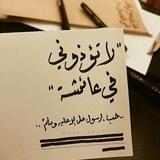 "لا تؤذوني
في عائشة"
- حب رسول الله صلى الله عليه وسلم ..